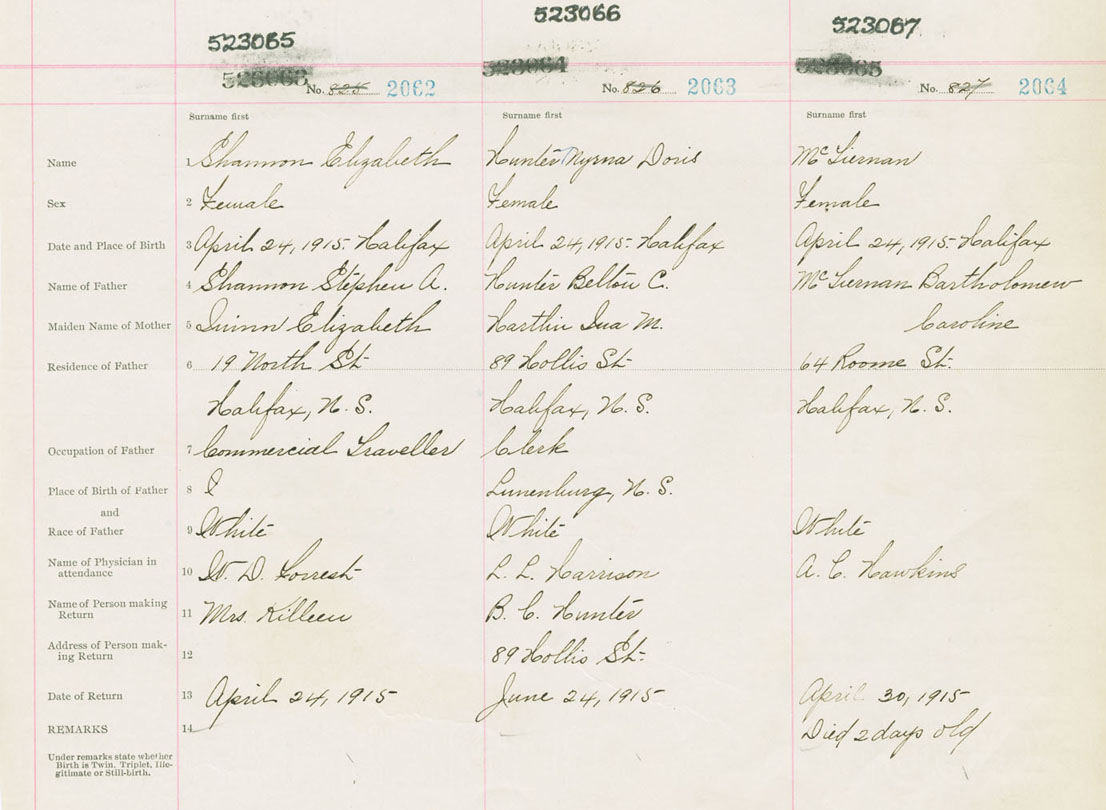 523065 523066 523067
No. 825 2062 No. 826 2063 No. 827 2064
Surname first Surname first Surname first
Name 1 Shannon Elizabeth Hunter Myrna Doris McTiernan
Sex 2 Female Female Female
Date and Place of Birth 3 April 24, 1915- Halifax April 24, 1915- Halifax April 24, 1915- Halifax
Name of Father 4 Shannon Stephen A. Hunter Belton C. McTiernan Bartholomew
Maiden Name of Mother 5 Quinn Elizabeth Harthin Ina M. Caroline
Residence of Father 6 19 North St. 89 Hollis St. 64 Roome St.
Halifax, N. S. Halifax, N. S. Halifax, N. S.
Occupation of Father 7 Commercial Traveller Clerk
Place of Birth of Father 8 Lunenburg, N. S.
and
Race of Father 9 White White White
Name of Physician in
attendance 10 W. D. Forrest L. L. Harrison A. C. Hawkins
Name of Person making
Return 11 Mrs. Killeen B. C. Hunter
Address of Person mak-
ing Return 12 89 Hollis St.
Date of Return 13 April 24, 1915 June 24, 1915 April 30, 1915
REMARKS 14 Died 2 days old
Under remarks state whether
Birth is Twin, Triplet, Ille-
gitimate or Still-birth.